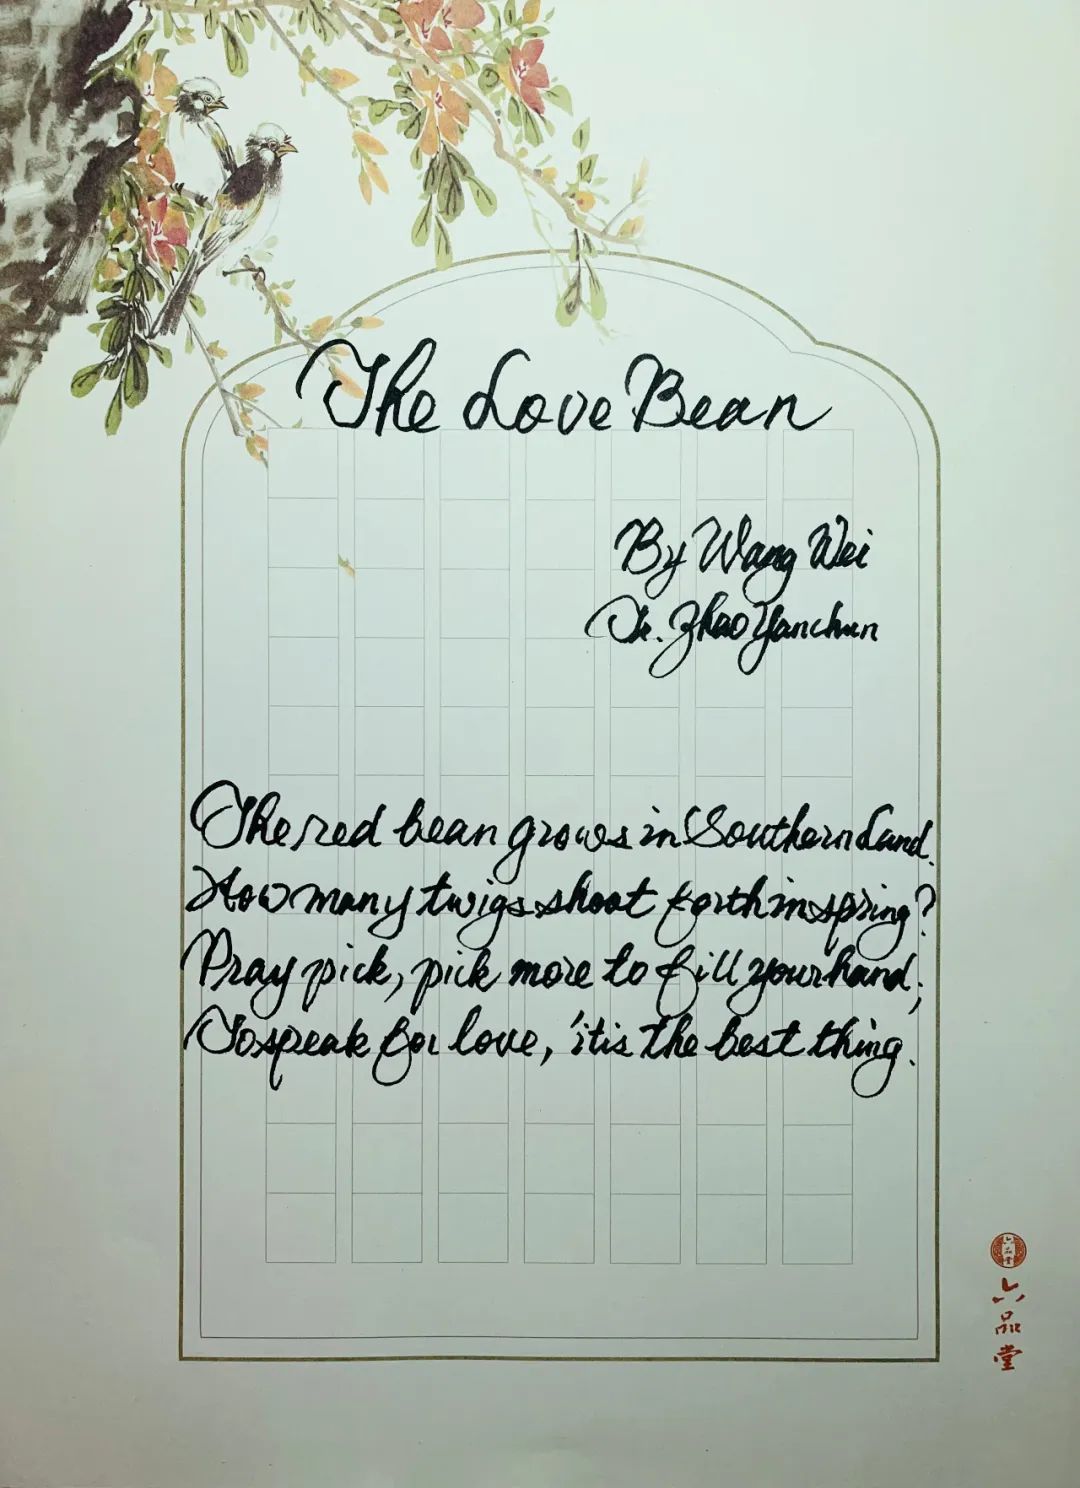 The Love Bean
By Wang Wei
Tr. Zhao Yanchun
The red bean grows in Southern Land.
How many twigs shoot forth in spring?
Pray pick, pick more to fill your hand;
To speak for love, 'it is the best thing.
六品堂
六品堂